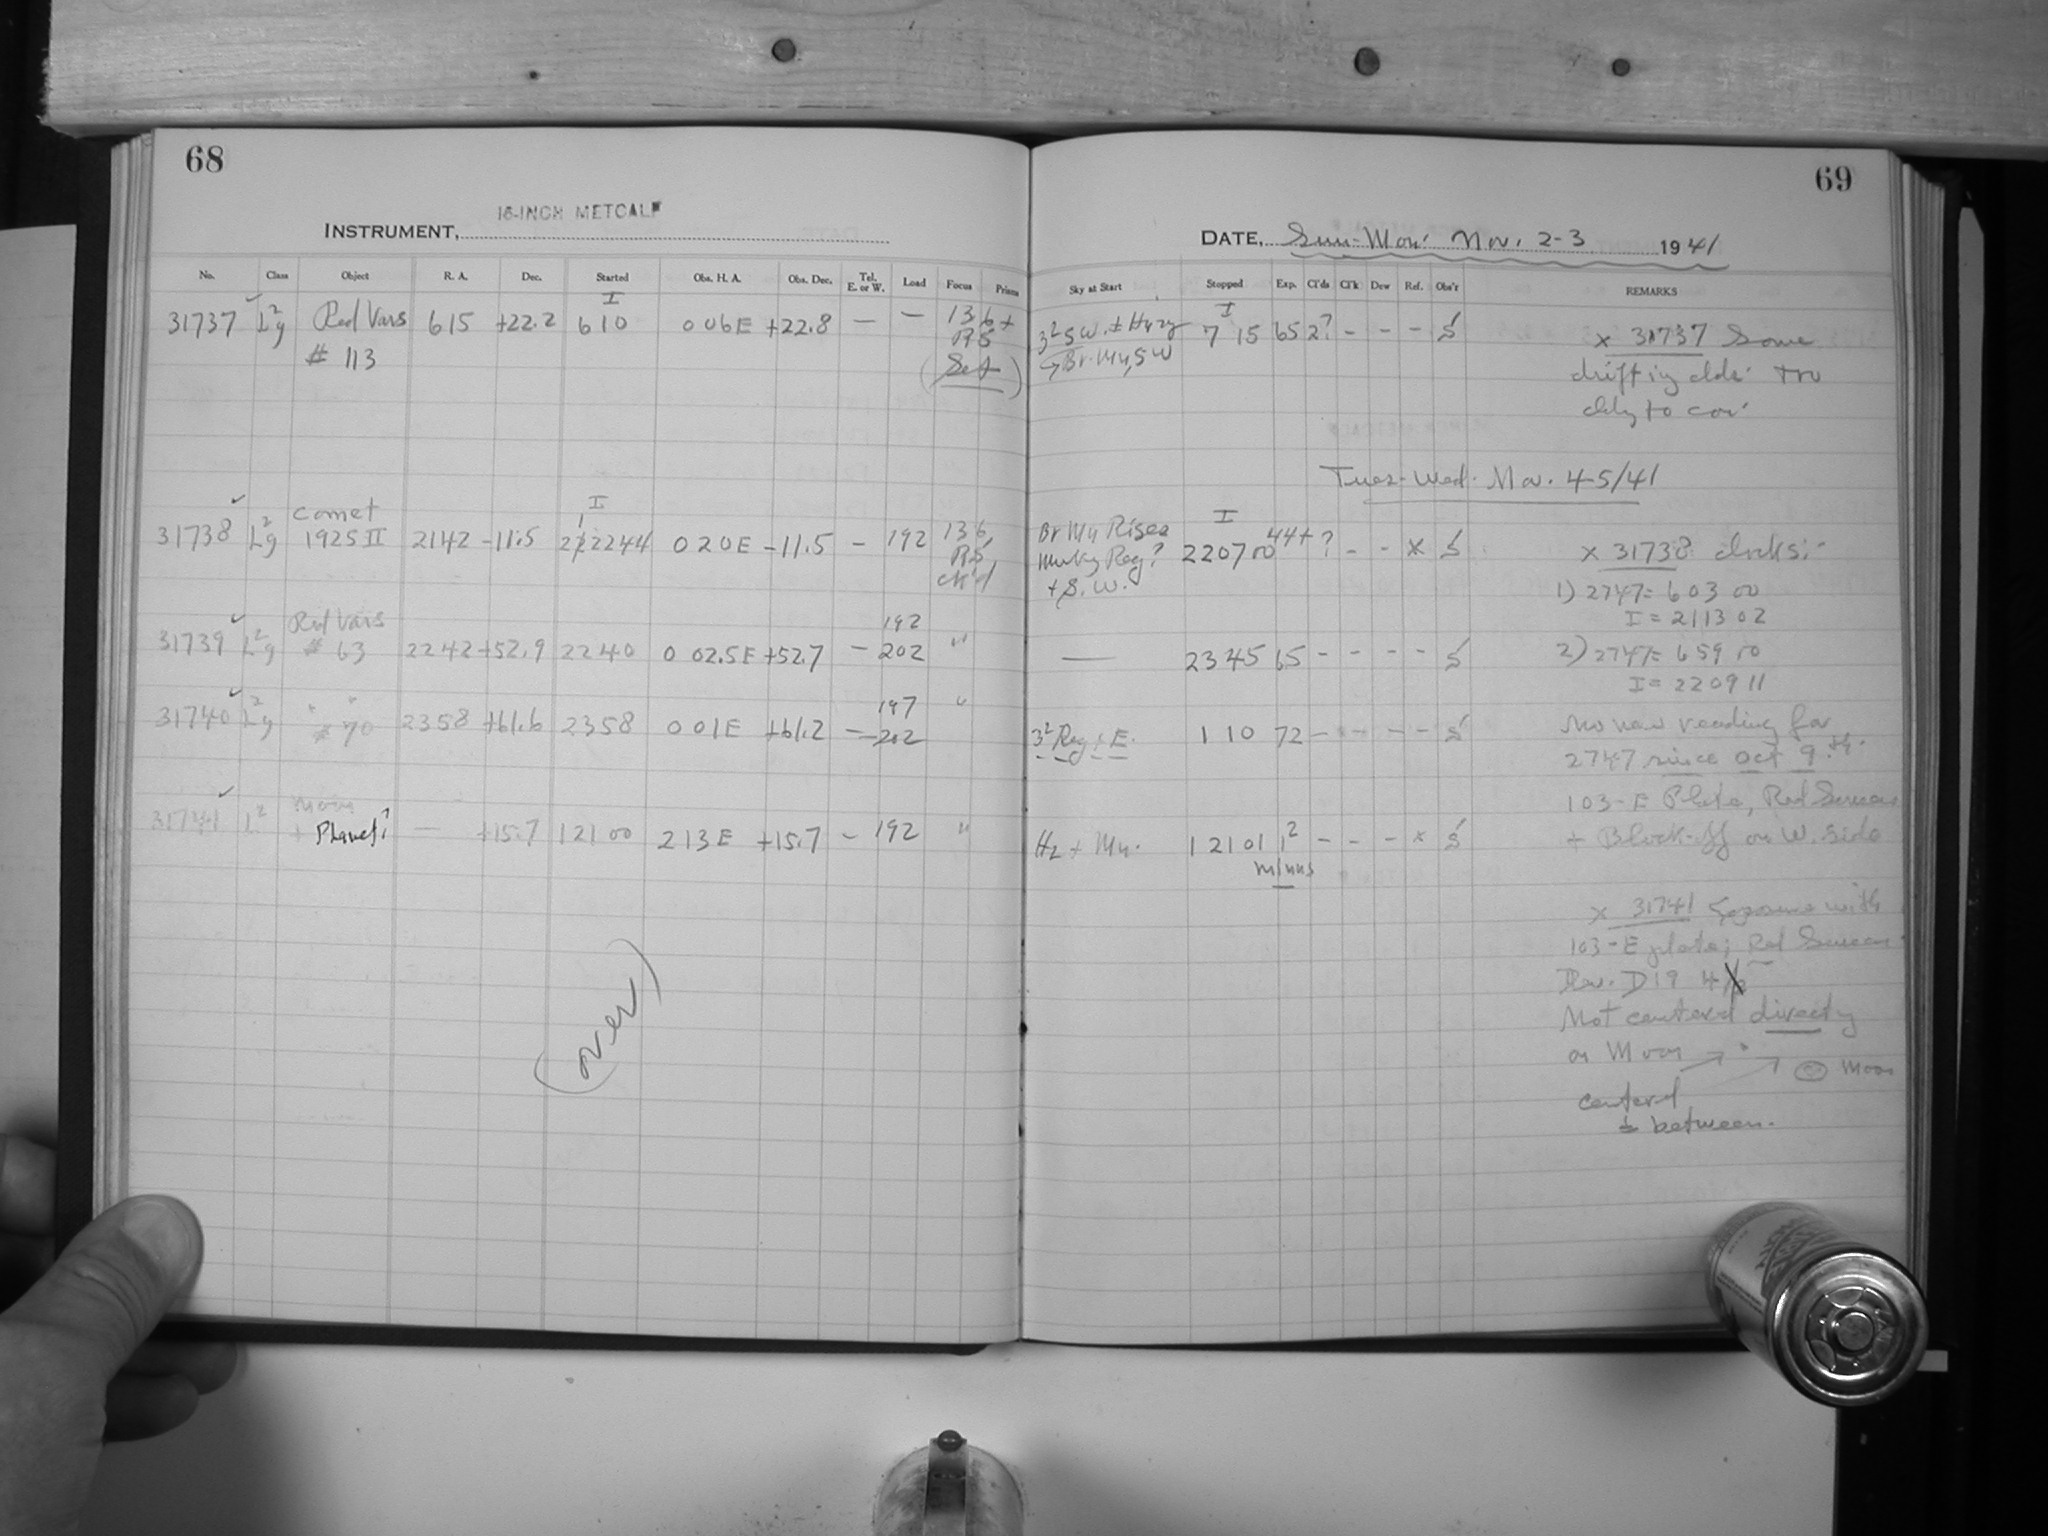 68
16-INCH METCALF
INSTRUMENT,
No. Class Object R. A. Dec. Started Obs. H. A. Obs. Dec. Tel. E. or W. Load Focus Prism
I
31737 Red Vars 615 +22.2 610 0 06E +22.8 — — 136+
# 113
I
comet
31738 1925 II 2142 -11.5 2244 0 20E -11.5 - 192 136
Red Vars 192
31739 # 63 2242 +52.9 2240 0 02.5E +52.7 - 202 "
197
31740 " # 70 2358 +61.6 2358 0 01E +61.2 - 202 "
Moon
31741 L2 + Planet? — +15.7 12100 213E +15.7 - 192 "
(over)
69
DATE, Sun-Mon. Nov. 2-3 1941
Sky at Start Stopped Exp. Cl'ds Cl'k Dew Ref. Obs'r REMARKS
I
7 15 65 2? - - - S
→ Br. Mn, SW
x 31737 Some
drifting clds.
Tues-Wed. Nov. 4-5/41
I
Br Mn Rises
Murky Reg? 220700 44+ ? - - x S
+ S.W.
x 31738 clocks:-
1) 2747= 603 00
I = 2113 02
— 2345 65 - - - - S
2) 2747= 659 00
I = 2209 11
3² Reg + E. 1 10 72 - - - - S
No new reading for
2747 since Oct 9th.
103-E Plate, Red Screen
+ Block-off on W. side
Hz + Mn. 12101 1² - - - x S
minus
x 31741 Exposure with
103-E plate; Red Screen
Dev. D19
Not centered directly
on Moon
Moon
centered
± between.